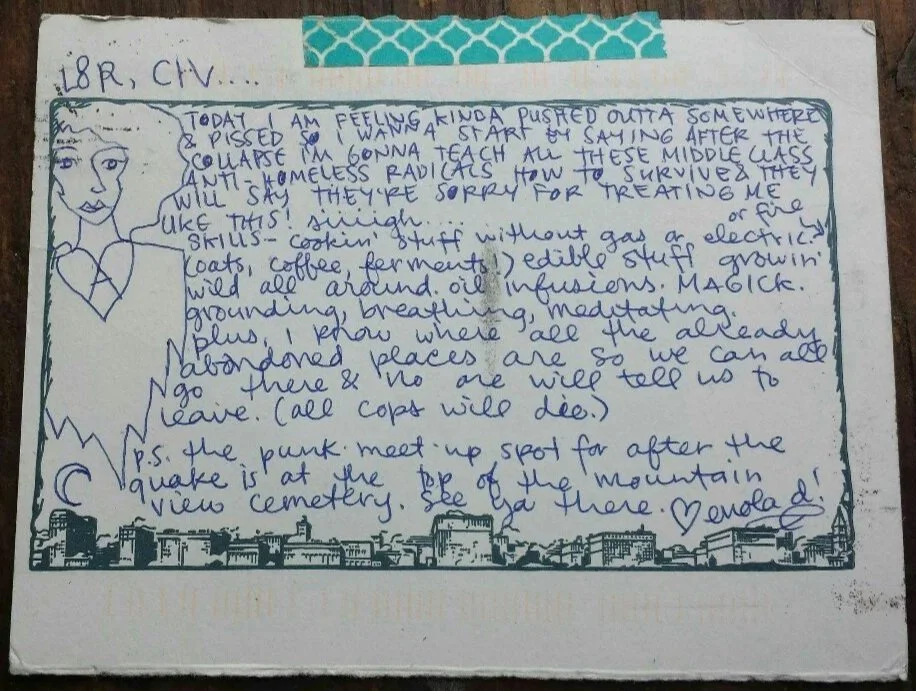 L8R, CIV...
TODAY I AM FEELING KINDA PUSHED OUTTA SOMEWHERE
& PISSED SO I WANNA START BY SAYING AFTER THE
COLLAPSE I'M GONNA TEACH ALL THESE MIDDLE CLASS
ANTI-HOMELESS RADICALS HOW TO SURVIVE & THEY
WILL SAY THEY'RE SORRY FOR TREATING ME
LIKE THIS! siiiigh....
or fire
SKILLS - cookin' stuff without gas or electricity
(oats, coffee, ferments) edible stuff growin'
wild all around. oil infusions. MAGICK.
grounding, breathing, meditating.
plus, i know where all the already
abandoned places are so we can all
go there & no one will tell us to
leave. (all cops will die.)
p.s. the punk meet-up spot for after the
quake is at the top of the mountain
view cemetery. See ya there. ♡ enola d!
A